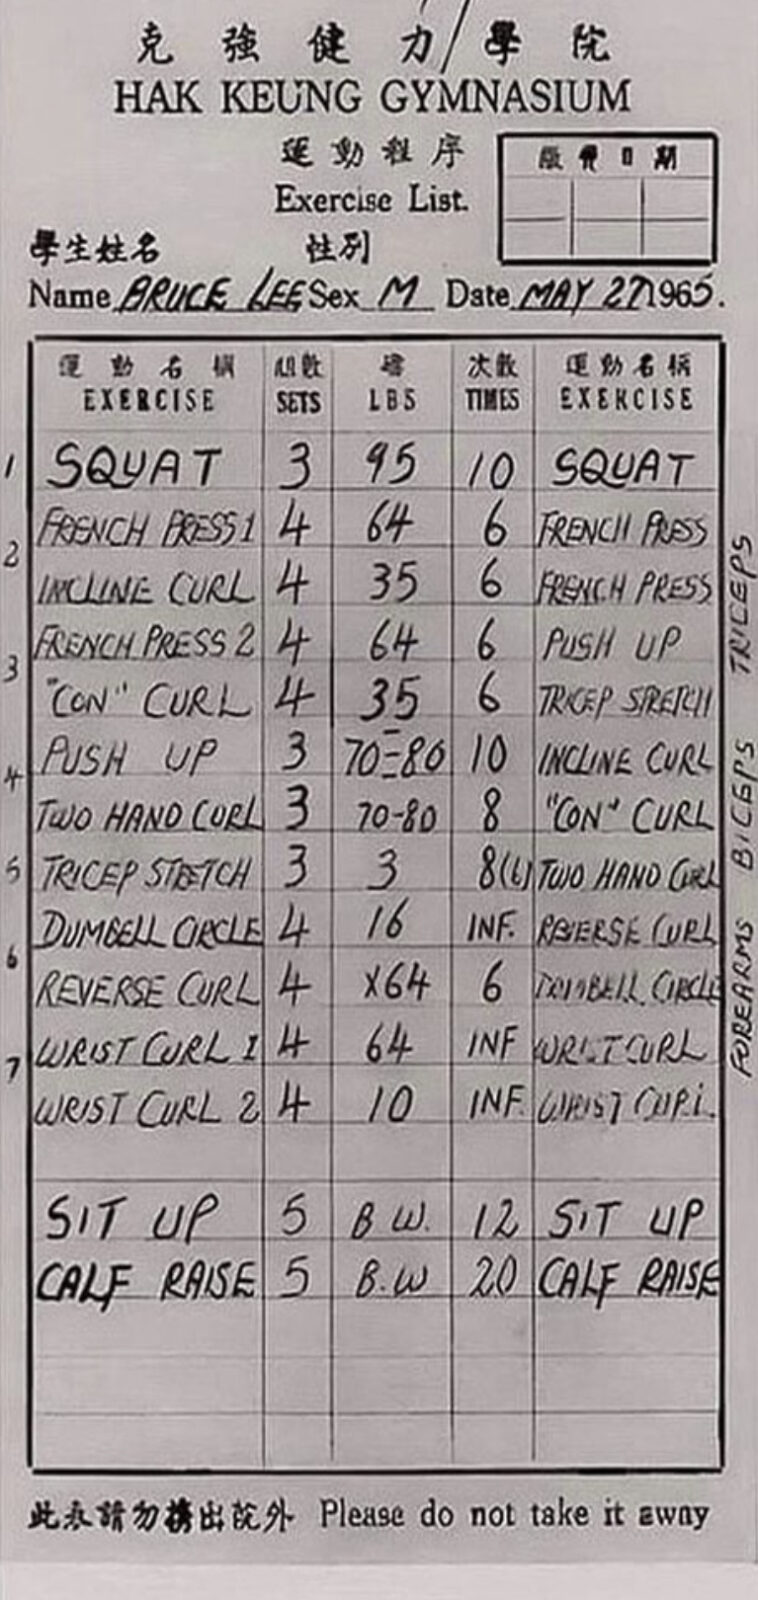 克強健力學院
HAK KEUNG GYMNASIUM
運動程序
Exercise List.
繳費日期
學生姓名 性別
Name BRUCE LEE Sex M Date MAY 27 1965.
運動名稱 組數 磅 次數 運動名稱
EXERCISE SETS LBS TIMES EXERCISE
1 SQUAT 3 95 10 SQUAT
2 FRENCH PRESS 1 4 64 6 FRENCH PRESS
INCLINE CURL 4 35 6 FRENCH PRESS
3 FRENCH PRESS 2 4 64 6 PUSH UP
"CON" CURL 4 35 6 TRICEP STRETCH
4 PUSH UP 3 70-80 10 INCLINE CURL
TWO HAND CURL 3 70-80 8 "CON" CURL
5 TRICEP STRETCH 3 3 8(6) TWO HAND CURL
6 DUMBELL CIRCLE 4 16 INF. REVERSE CURL
REVERSE CURL 4 X64 6 DUMBELL CIRCLE
7 WRIST CURL 1 4 64 INF WRIST CURL
WRIST CURL 2 4 10 INF. WRIST CURL
SIT UP 5 B.W. 12 SIT UP
CALF RAISE 5 B.W 20 CALF RAISE
TRICEPS
BICEPS
FOREARMS
此表請勿携出院外 Please do not take it away